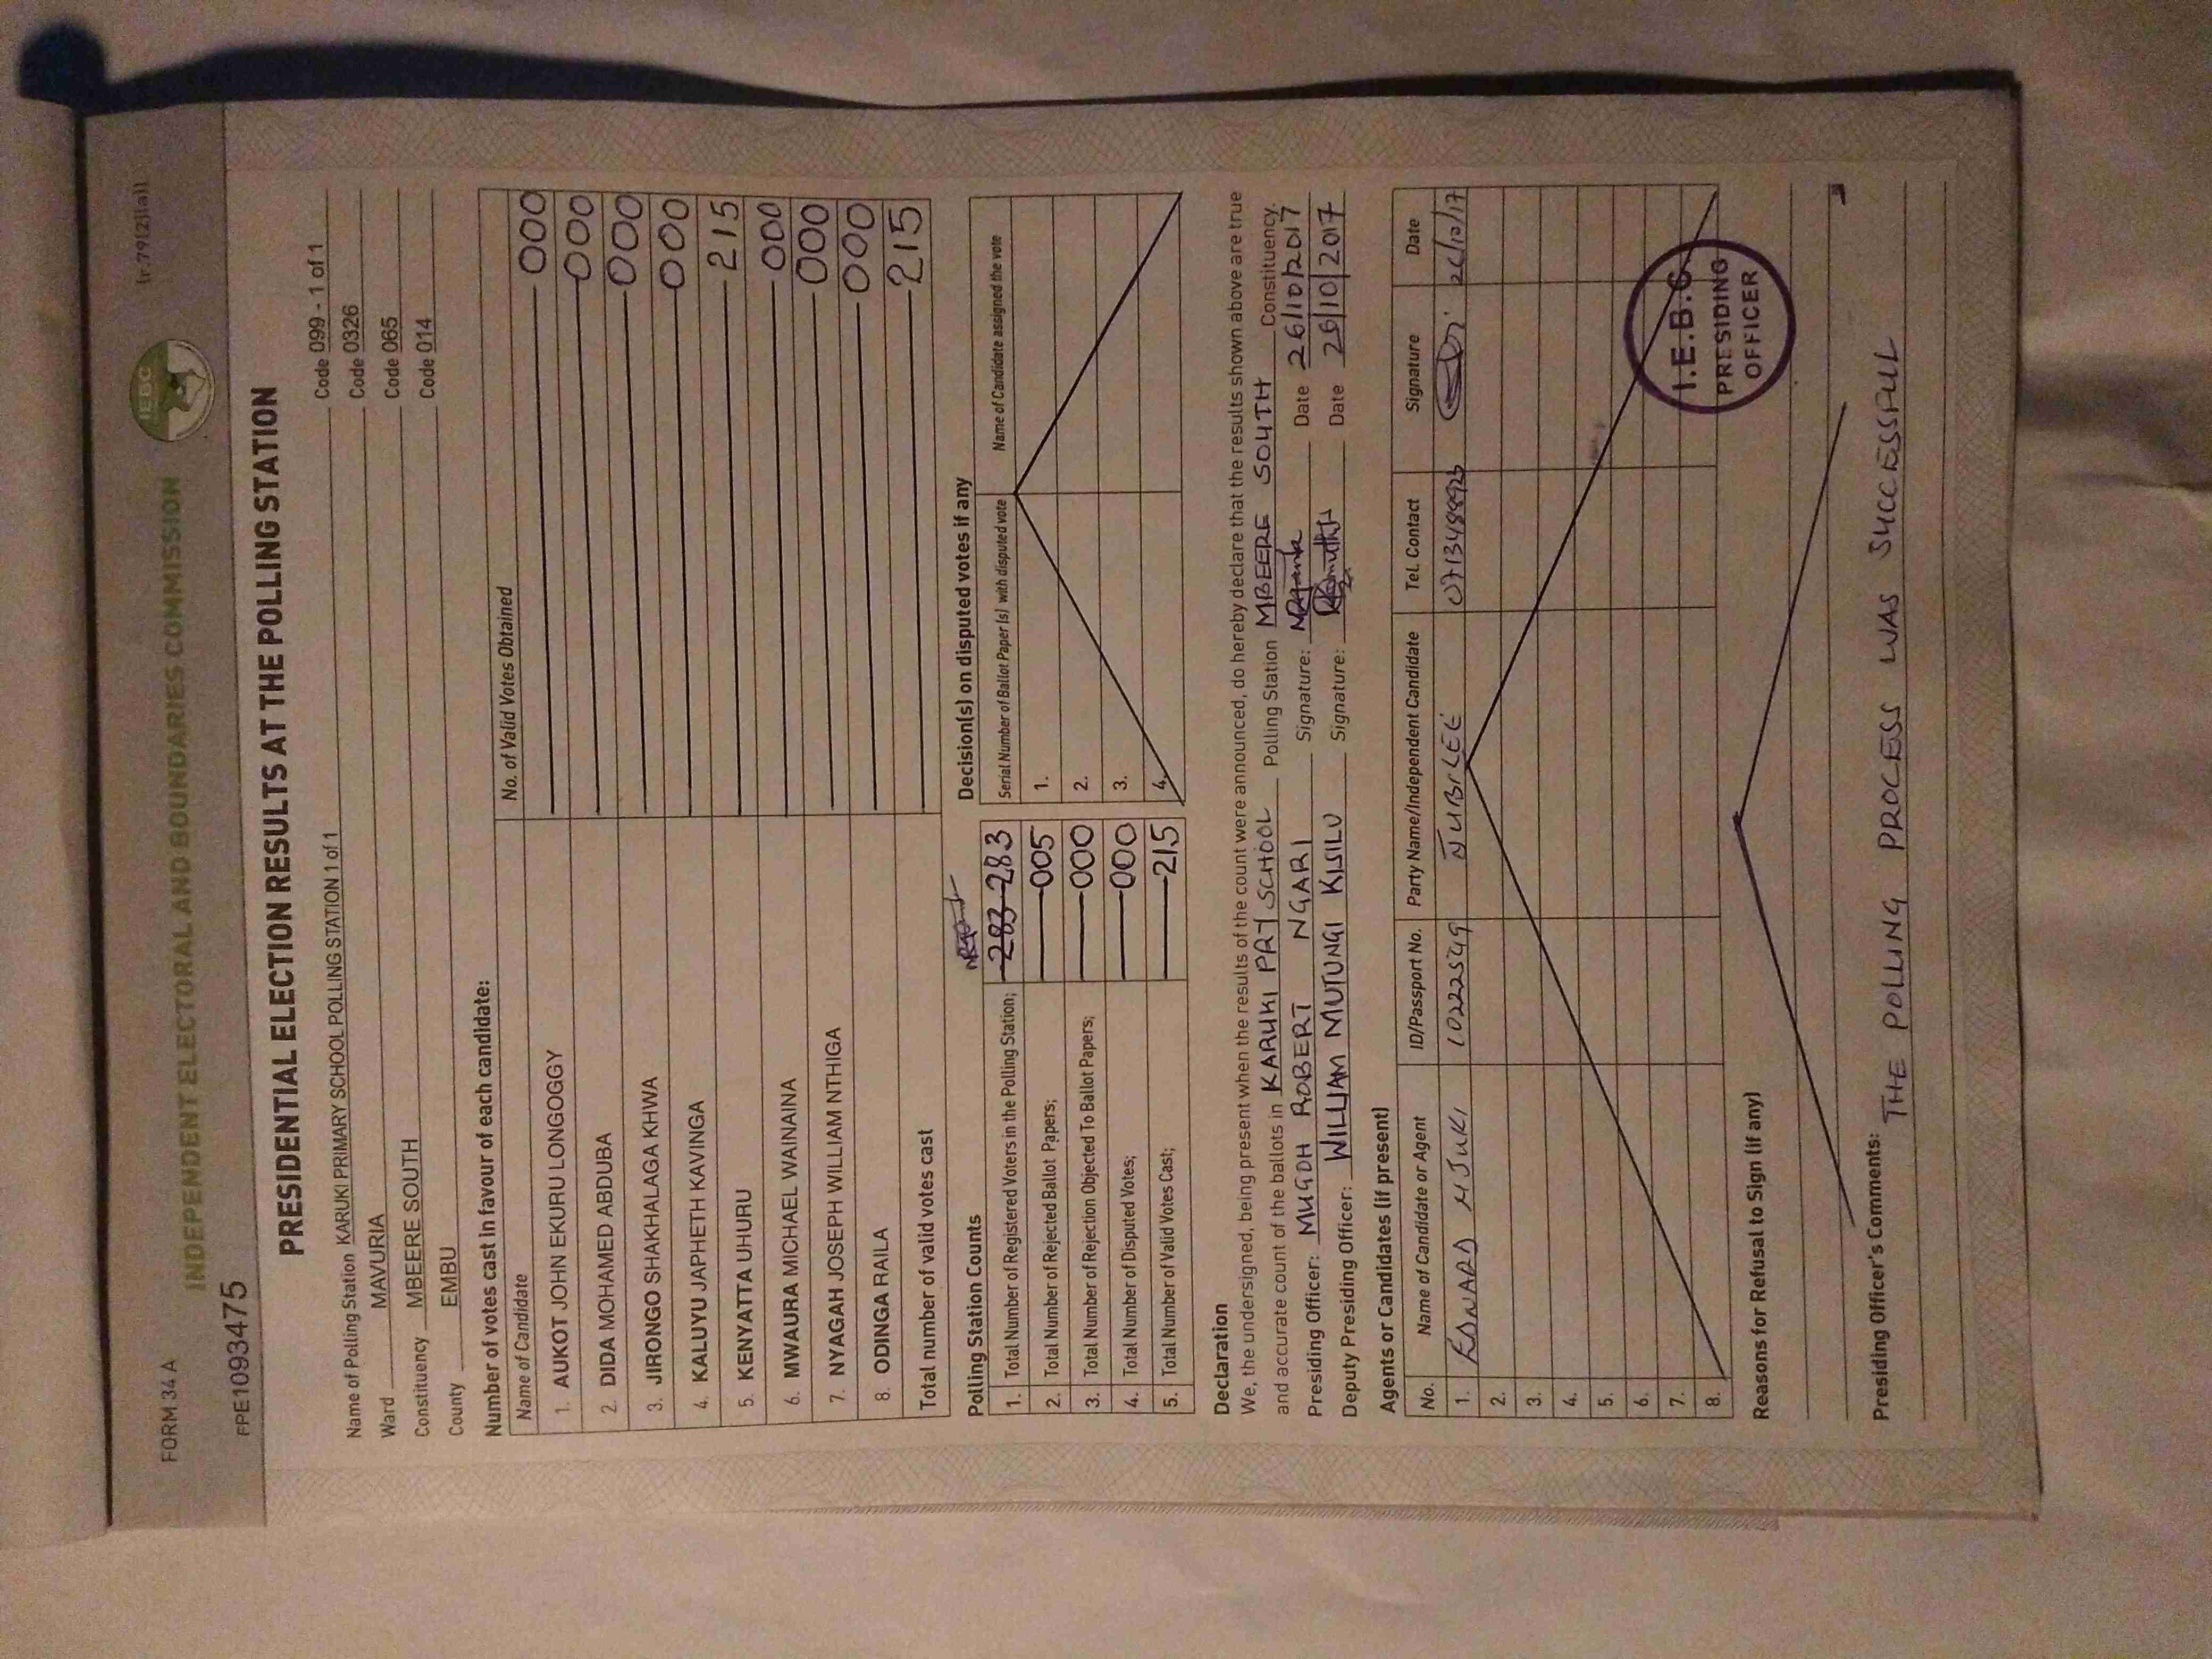 FORM 34 A
(r.79(2)(a))
IEBC
INDEPENDENT ELECTORAL AND BOUNDARIES COMMISSION
FPE1093475
PRESIDENTIAL ELECTION RESULTS AT THE POLLING STATION
Name of Polling Station KARUKI PRIMARY SCHOOL POLLING STATION 1 of 1 Code 099 - 1 of 1
Ward MAVURIA Code 0326
Constituency MBEERE SOUTH Code 065
County EMBU Code 014
Number of votes cast in favour of each candidate:
Name of Candidate No. of Valid Votes Obtained
1. AUKOT JOHN EKURU LONGOGGY 000
2. DIDA MOHAMED ABDUBA 000
3. JIRONGO SHAKHALAGA KHWA 000
4. KALUYU JAPHETH KAVINGA 000
5. KENYATTA UHURU 215
6. MWAURA MICHAEL WAINAINA 000
7. NYAGAH JOSEPH WILLIAM NTHIGA 000
8. ODINGA RAILA 000
Total number of valid votes cast 215
Polling Station Counts
1. Total Number of Registered Voters in the Polling Station; 283 283
2. Total Number of Rejected Ballot Papers; 005
3. Total Number of Rejection Objected To Ballot Papers; 000
4. Total Number of Disputed Votes; 000
5. Total Number of Valid Votes Cast; 215
Decision(s) on disputed votes if any
Serial Number of Ballot Paper (s) with disputed vote Name of Candidate assigned the vote
1.
2.
3.
4.
Declaration
We, the undersigned, being present when the results of the count were announced, do hereby declare that the results shown above are true
and accurate count of the ballots in KARUKI PRI SCHOOL Polling Station MBEERE SOUTH Constituency.
Presiding Officer: MUGOH ROBERT NGARI Signature: Date 26/10/2017
Deputy Presiding Officer: WILLIAM MUTUNGI KISILU Signature: Date 26/10/2017
Agents or Candidates (if present)
No. Name of Candidate or Agent ID/Passport No. Party Name/Independent Candidate Tel. Contact Signature Date
1. NJUKI 10222549 JUBILEE 0713488923 26/10/17
2.
3.
4.
5.
6.
7.
8.
I.E.B.C
PRESIDING
OFFICER
Reasons for Refusal to Sign (if any)
Presiding Officer's Comments:
THE POLLING PROCESS WAS SUCCESSFULL